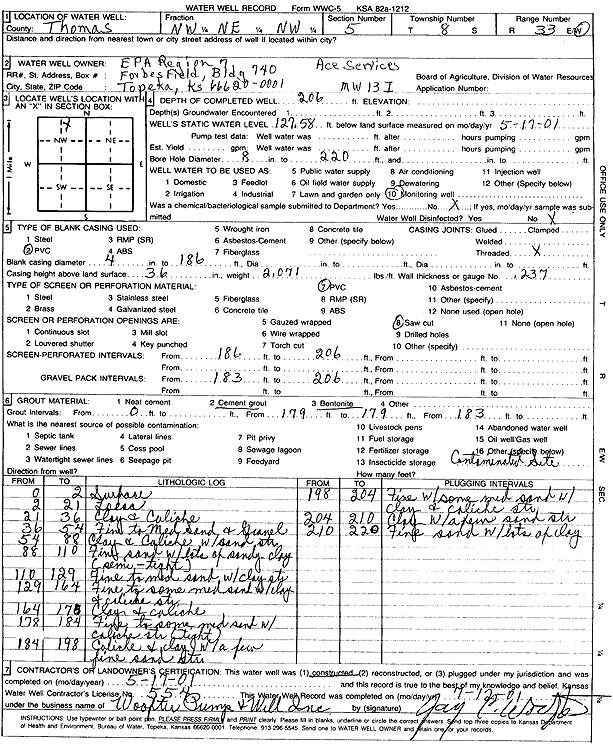 WATER WELL RECORD Form WWC-5 KSA 82a-1212
1 LOCATION OF WATER WELL: Fraction Section Number Township Number Range Number
County: Thomas NW ¼ NE ¼ NW ¼ 5 T 8 S R 33 E/W
Distance and direction from nearest town or city street address of well if located within city?
2 WATER WELL OWNER: EPA Region 7 Ace Services
RR#, St. Address, Box # : Forbes Field, Bldg 740 Board of Agriculture, Division of Water Resources
City, State, ZIP Code : Topeka, Ks 66620-0001 MW 13 I Application Number:
3 LOCATE WELL'S LOCATION WITH AN "X" IN SECTION BOX:
N
X
NW NE
W E
SW SE
S
1 Mile
4 DEPTH OF COMPLETED WELL 206 ft. ELEVATION:
Depth(s) Groundwater Encountered 1 ft. 2. ft. 3. ft.
WELL'S STATIC WATER LEVEL 127.58 ft. below land surface measured on mo/day/yr 5-17-01
Pump test data: Well water was ft. after hours pumping gpm
Est. Yield gpm: Well water was ft. after hours pumping gpm
Bore Hole Diameter 8 in. to 220 ft., and in. to ft.
WELL WATER TO BE USED AS: 5 Public water supply 8 Air conditioning 11 Injection well
1 Domestic 3 Feedlot 6 Oil field water supply 9 Dewatering 12 Other (Specify below)
2 Irrigation 4 Industrial 7 Lawn and garden only 10 Monitoring well
Was a chemical/bacteriological sample submitted to Department? Yes No X; If yes, mo/day/yr sample was submitted Water Well Disinfected? Yes No X
5 TYPE OF BLANK CASING USED: 5 Wrought iron 8 Concrete tile CASING JOINTS: Glued Clamped
1 Steel 3 RMP (SR) 6 Asbestos-Cement 9 Other (specify below) Welded
2 PVC 4 ABS 7 Fiberglass Threaded X
Blank casing diameter 4 in. to 186 ft., Dia in. to ft., Dia in. to ft.
Casing height above land surface 36 in., weight 2,071 lbs./ft. Wall thickness or gauge No. .237
TYPE OF SCREEN OR PERFORATION MATERIAL: 7 PVC 10 Asbestos-cement
1 Steel 3 Stainless steel 5 Fiberglass 8 RMP (SR) 11 Other (specify)
2 Brass 4 Galvanized steel 6 Concrete tile 9 ABS 12 None used (open hole)
SCREEN OR PERFORATION OPENINGS ARE: 5 Gauzed wrapped 8 Saw cut 11 None (open hole)
1 Continuous slot 3 Mill slot 6 Wire wrapped 9 Drilled holes
2 Louvered shutter 4 Key punched 7 Torch cut 10 Other (specify)
SCREEN-PERFORATED INTERVALS: From 186 ft. to 206 ft., From ft. to ft.
From ft. to ft., From ft. to ft.
GRAVEL PACK INTERVALS: From 183 ft. to 206 ft., From ft. to ft.
From ft. to ft., From ft. to ft.
6 GROUT MATERIAL: 1 Neat cement 2 Cement grout 3 Bentonite 4 Other
Grout Intervals: From 0 ft. to 179 ft., From 179 ft. to 183 ft., From ft. to ft.
What is the nearest source of possible contamination: 10 Livestock pens 14 Abandoned water well
1 Septic tank 4 Lateral lines 7 Pit privy 11 Fuel storage 15 Oil well/Gas well
2 Sewer lines 5 Cess pool 8 Sewage lagoon 12 Fertilizer storage 16 Other (specify below)
3 Watertight sewer lines 6 Seepage pit 9 Feedyard 13 Insecticide storage Contaminated Site
Direction from well? How many feet?
FROM TO LITHOLOGIC LOG FROM TO PLUGGING INTERVALS
0 2 Surface 198 204 Fine w/some med sand w/
2 21 Loess clay & caliche str
21 36 Clay & Caliche 204 210 Clay w/a few sand str
36 54 Fine to Med Sand & Gravel 210 220 Fine sand w/lots of clay
54 88 Clay & Caliche w/sand str
88 110 Fine sand w/lots of sandy clay
(semi-tight)
110 129 Fine to med sand w/clay str
129 164 Fine to some med sand w/clay
& caliche str
164 178 Clay & caliche
178 184 Fine to some med sand w/
caliche str (tight)
184 198 Caliche & clay w/a few
fine sand str
7 CONTRACTOR'S OR LANDOWNER'S CERTIFICATION: This water well was (1) constructed, (2) reconstructed, or (3) plugged under my jurisdiction and was
completed on (mo/day/year) 5-11-01 and this record is true to the best of my knowledge and belief. Kansas
Water Well Contractor's License No. 554 This Water Well Record was completed on (mo/day/yr) 7-12-01
under the business name of Woofter Pump & Well Inc by (signature)
INSTRUCTIONS: Use typewriter or ball point pen. PLEASE PRESS FIRMLY and PRINT clearly. Please fill in blanks, underline or circle the correct answers. Send top three copies to Kansas Department
of Health and Environment, Bureau of Water, Topeka, Kansas 66620-0001. Telephone: 913-296-5545. Send one to WATER WELL OWNER and retain one for your records.
OFFICE USE ONLY
T
R
EW
SEC.
¼
¼
¼